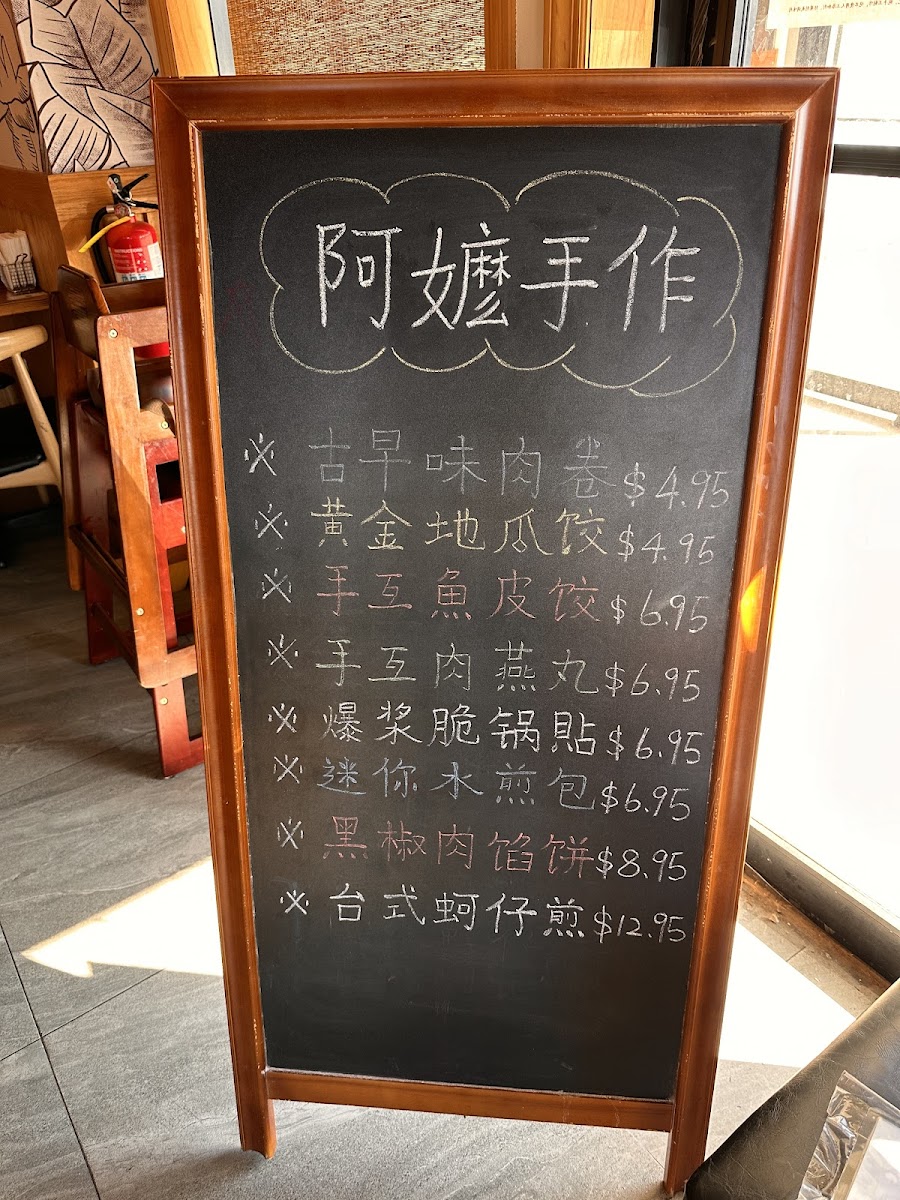 阿嬤手作
※ 古早味肉卷 $4.95
※ 黄金地瓜饺 $4.95
※ 手互魚皮饺 $6.95
※ 手互肉燕丸 $6.95
※ 爆浆脆锅貼 $6.95
※ 迷你水煎包 $6.95
※ 黑椒肉馅饼 $8.95
※ 台式蚵仔煎 $12.95